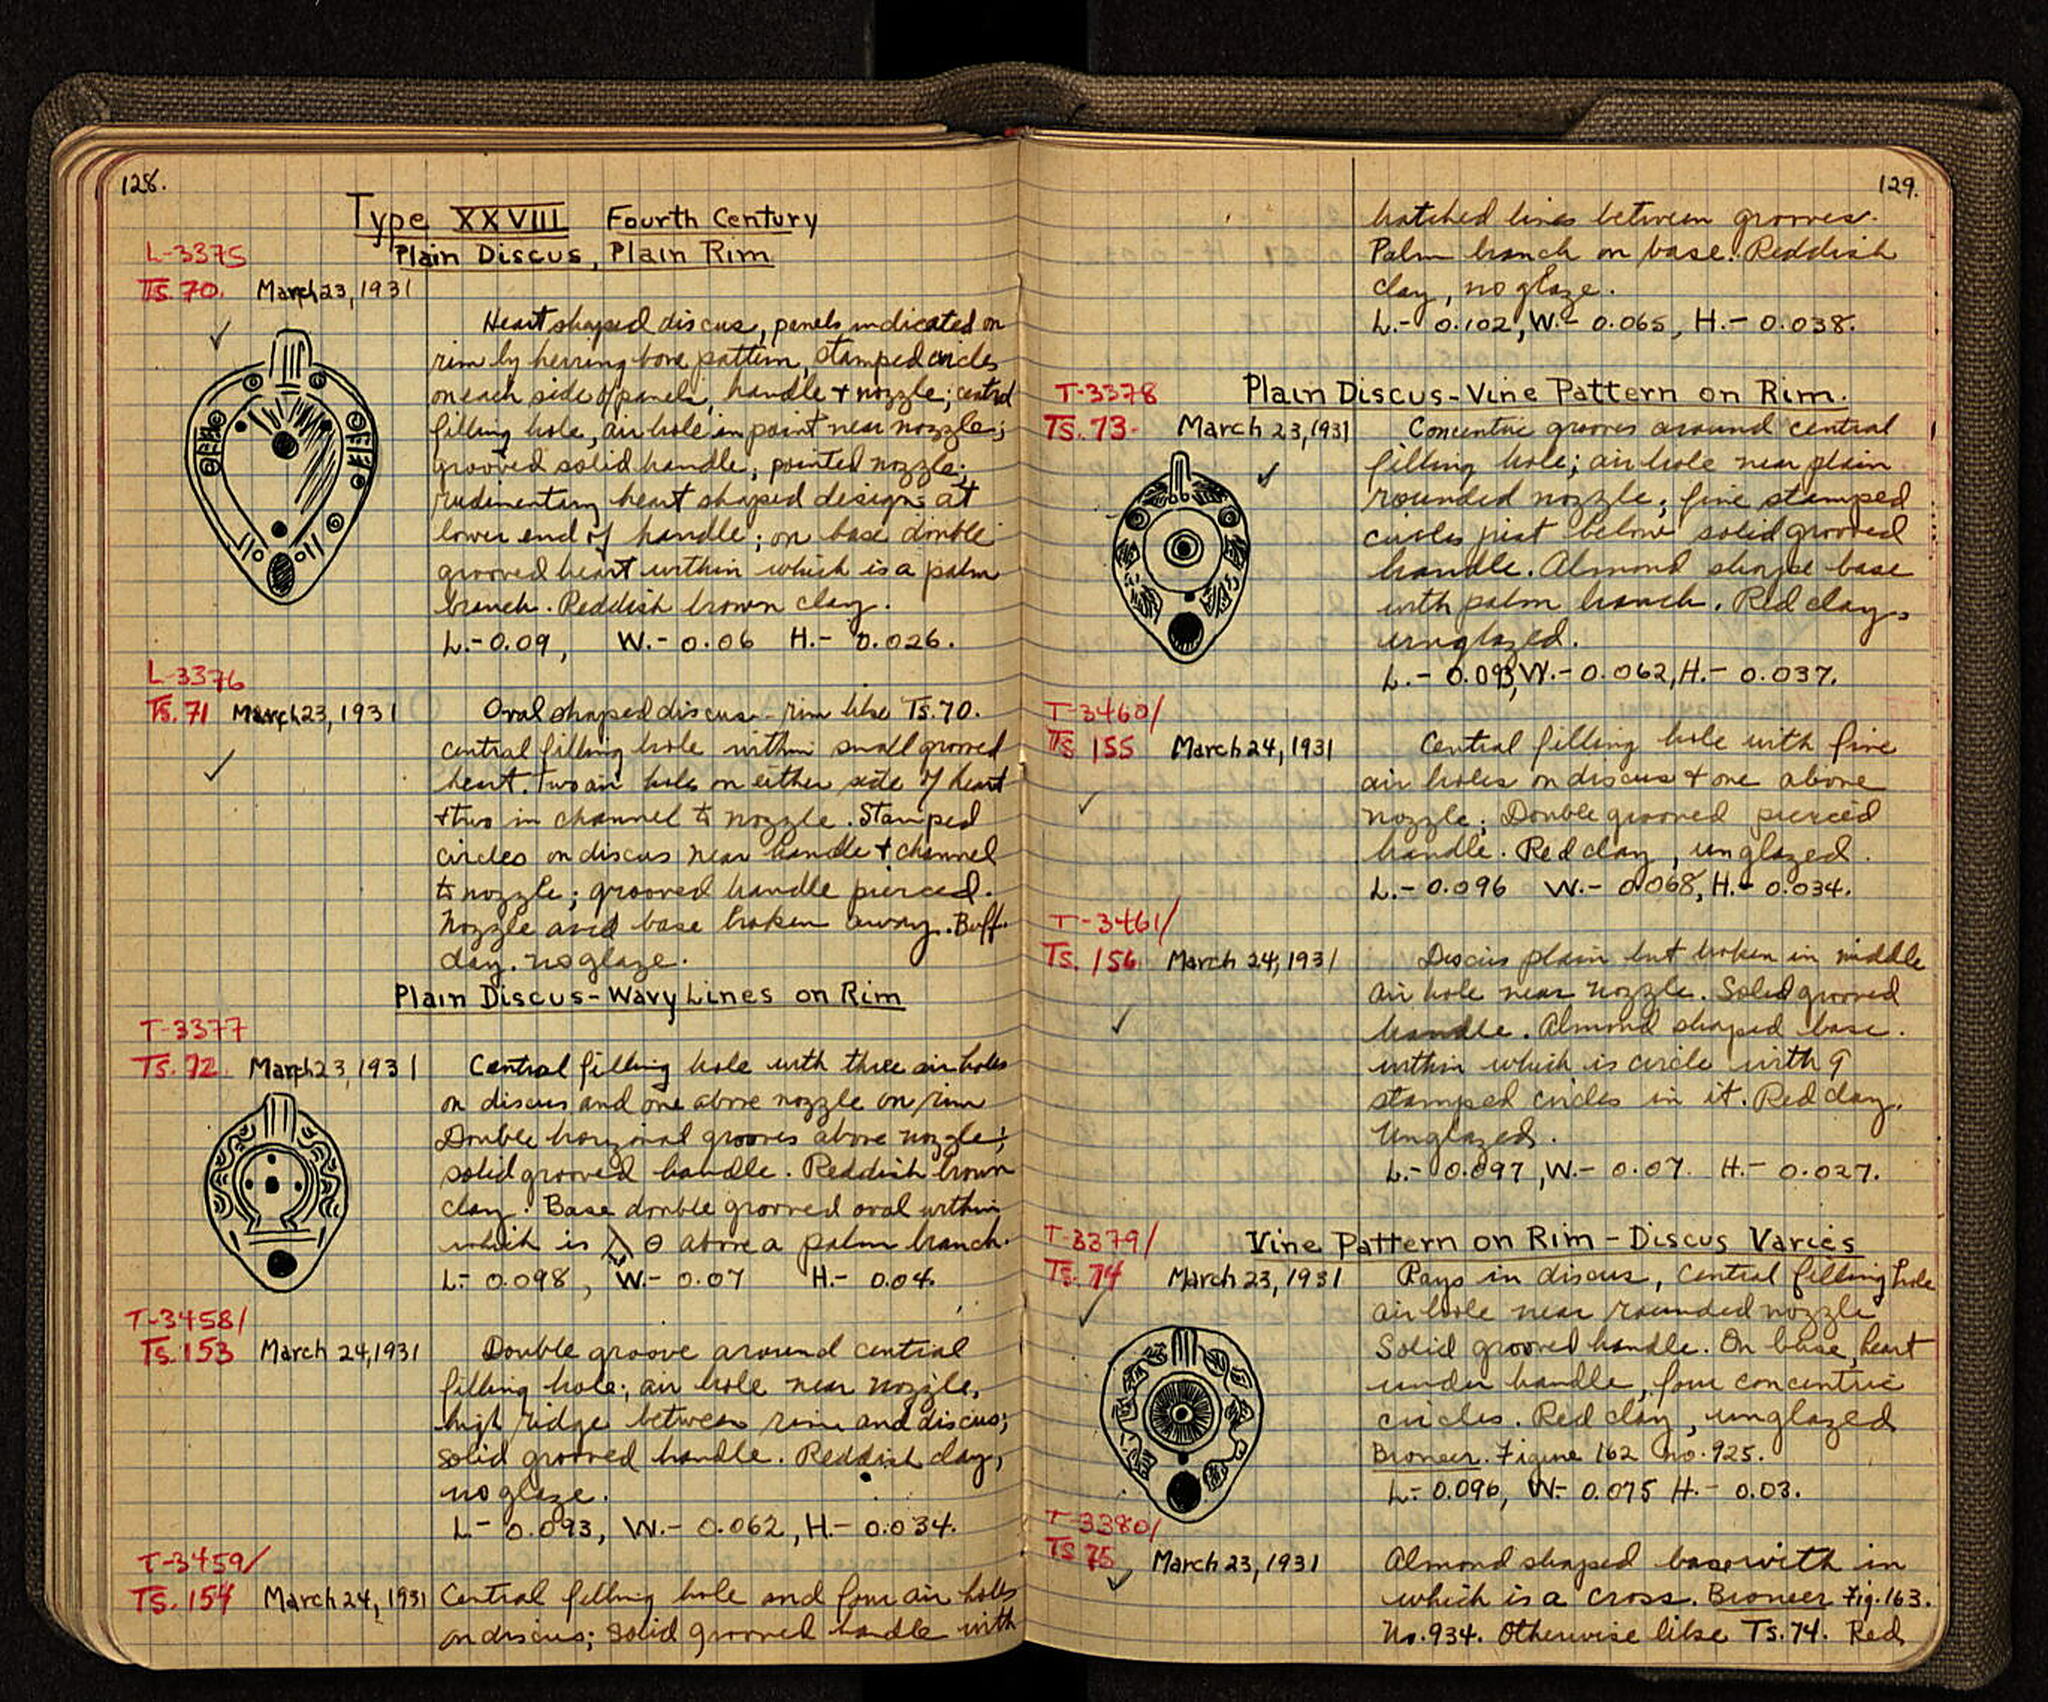 128.
Type XXVIII Fourth Century
Plain Discus, Plain Rim
L-3375
Ts. 70. March 23, 1931
Heart shaped discus, panels indicated on
rim by herring bone pattern, stamped circles
on each side of panels, handle + nozzle; central
filling hole, air hole in point near nozzle;
grooved solid handle; pointed nozzle;
rudimentary heart shaped design at
lower end of handle; on base double
grooved heart within which is a palm
branch. Reddish brown clay.
L.- 0.09, W.- 0.06 H.- 0.026.
L-3376
Ts. 71 March 23, 1931
Oval shaped discus - rim like Ts. 70.
central filling hole within small grooved
heart. Two air holes on either side of heart
+ two in channel to nozzle. Stamped
circles on discus near handle + channel
to nozzle; grooved handle pierced.
Nozzle and base broken away. Buff
clay. no glaze.
Plain Discus - Wavy Lines on Rim
T-3377
Ts. 72. March 23, 1931
Central filling hole with three air holes
on discus and one above nozzle on rim
Double horizonal grooves above nozzle;
solid grooved handle. Reddish brown
clay. Base double grooved oval within
which is λ Θ above a palm branch.
L.- 0.098, W.- 0.07 H.- 0.04.
T-3458/
Ts. 153 March 24, 1931
Double groove around central
filling hole; air hole near nozzle,
high ridge between rim and discus;
solid grooved handle. Reddish clay,
no glaze.
L- 0.093, W.- 0.062, H.- 0.034.
T-3459/
Ts. 154 March 24, 1931 Central filling hole and four air holes
on discus; solid grooved handle with
129.
hatched lines between grooves.
Palm branch on base. Reddish
clay, no glaze.
L.- 0.102, W.- 0.065, H.- 0.038.
T-3378
Plain Discus - Vine Pattern on Rim.
Ts. 73- March 23, 1931
Concentric grooves around central
filling hole; air hole near plain
rounded nozzle; five stamped
circles just below solid grooved
handle. Almond shape base
with palm branch. Red clay,
unglazed.
L.- 0.093, W.- 0.062, H.- 0.037.
T-3460/
Ts 155 March 24, 1931
Central filling hole with five
air holes on discus + one above
nozzle; Double grooved pierced
handle. Red clay, unglazed.
L.- 0.096 W.- 0.068, H.- 0.034.
T-3461/
Ts. 156 March 24, 1931
Discus plain but broken in middle
air hole near nozzle. Solid grooved
handle. Almond shaped base.
within which is circle with 9
stamped circles in it. Red clay,
Unglazed.
L.- 0.097, W.- 0.07. H.- 0.027.
T-3379/
Vine Pattern on Rim - Discus Varies
Ts. 74 March 23, 1931
Rays in discus, central filling hole
air hole near rounded nozzle
Solid grooved handle. On base, heart
under handle, four concentric
circles. Red clay, unglazed
Broneer. Figure 162 no. 925.
L.- 0.096, W- 0.075 H.- 0.03.
T-3380/
Ts 75 March 23, 1931
Almond shaped base with in
which is a cross. Broneer Fig. 163.
No. 934. Otherwise like Ts. 74. Red